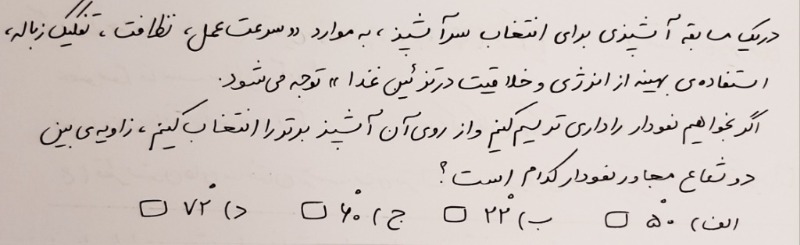 در یک مسابقه آشپزی برای انتخاب سرآشپز، به موارد «سرعت عمل، نظافت، تفکیک زباله،
استفاده‌ی بهینه از انرژی و خلاقیت در تزئین غذا» توجه می‌شود.
اگر بخواهیم نمودار راداری ترسیم کنیم و از روی آن آشپز برتر را انتخاب کنیم، زاویه‌ی بین
دو شعاع مجاور نمودار کدام است؟
الف) ۵۰° □ ب) ۲۲° □ ج) ۶۰° □ د) ۷۲° □